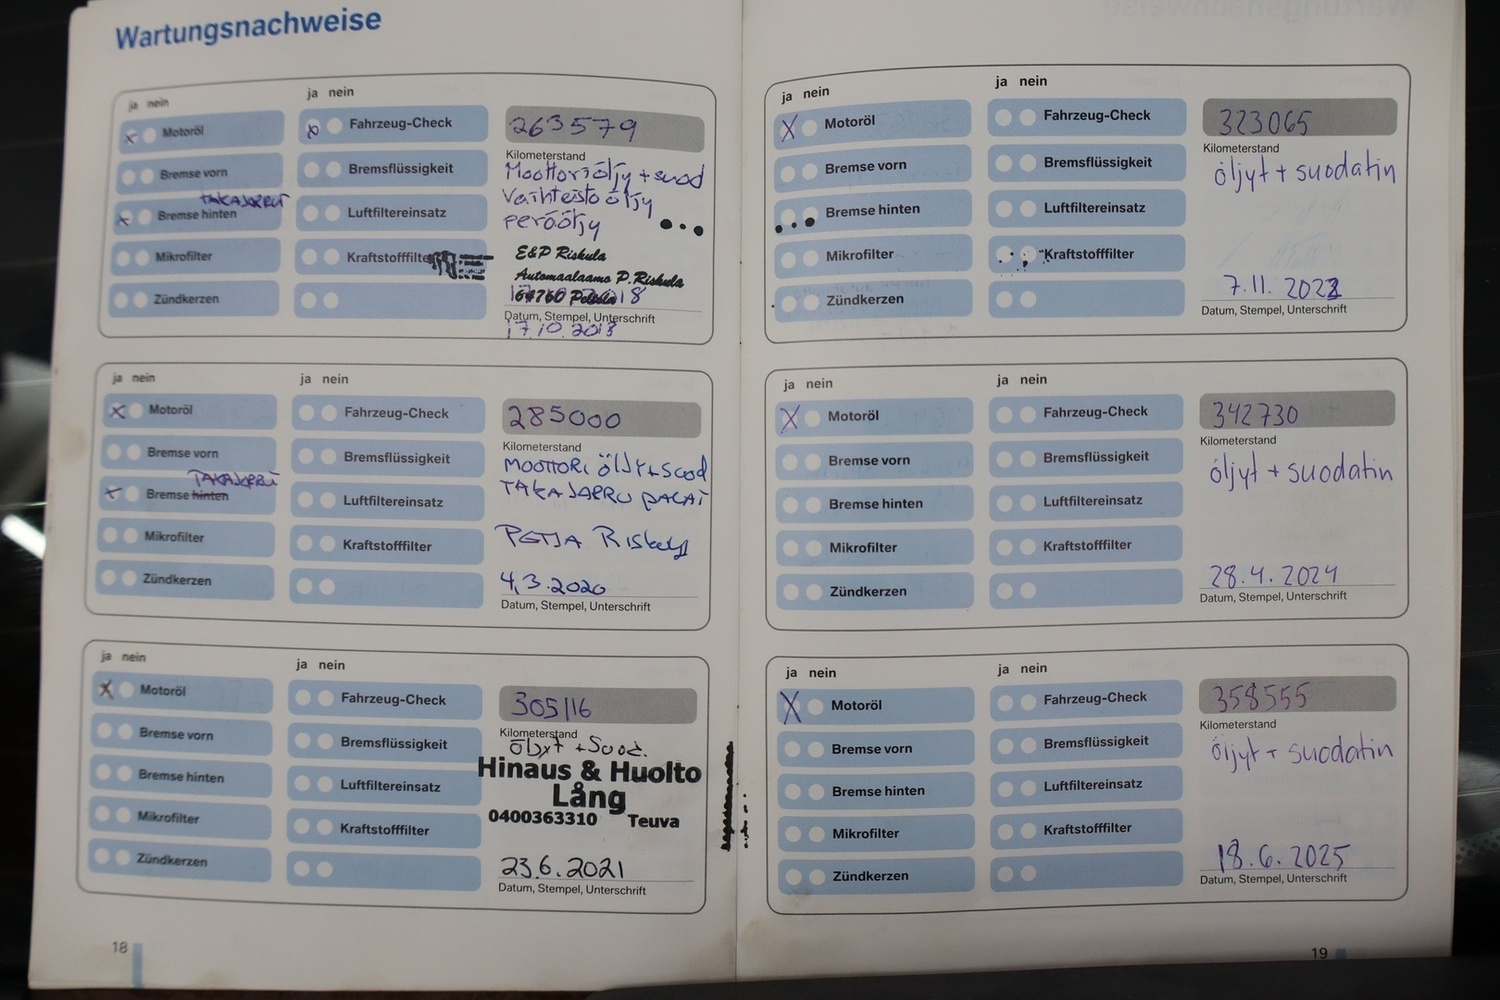 Wartungsnachweise
ja nein
Motoröl
Bremse vorn
TAKAJARRUT
Bremse hinten
Mikrofilter
Zündkerzen
ja nein
Fahrzeug-Check
Bremsflüssigkeit
Luftfiltereinsatz
Kraftstofffilter
263579
Kilometerstand
Moottoriöljy + suod
Vaihteistoöljy
peräöljy
E&P Riskula
Automaalaamo P.Riskula
64760
Datum, Stempel, Unterschrift
17.10.2018
ja nein
Motoröl
Bremse vorn
TAKAJARRU
Bremse hinten
Mikrofilter
Zündkerzen
ja nein
Fahrzeug-Check
Bremsflüssigkeit
Luftfiltereinsatz
Kraftstofffilter
285000
Kilometerstand
MOOTTORI ÖLJY+SUOD
TAKAJARRU PALAT
PETJA
4.3.2020
Datum, Stempel, Unterschrift
ja nein
Motoröl
Bremse vorn
Bremse hinten
Mikrofilter
Zündkerzen
ja nein
Fahrzeug-Check
Bremsflüssigkeit
Luftfiltereinsatz
Kraftstofffilter
305116
Kilometerstand
öljyt + Suod.
Hinaus & Huolto
Lång
0400363310 Teuva
23.6.2021
Datum, Stempel, Unterschrift
18
ja nein
Motoröl
Bremse vorn
Bremse hinten
Mikrofilter
Zündkerzen
ja nein
Fahrzeug-Check
Bremsflüssigkeit
Luftfiltereinsatz
Kraftstofffilter
323065
Kilometerstand
öljyt + suodatin
7.11.2022
Datum, Stempel, Unterschrift
ja nein
Motoröl
Bremse vorn
Bremse hinten
Mikrofilter
Zündkerzen
ja nein
Fahrzeug-Check
Bremsflüssigkeit
Luftfiltereinsatz
Kraftstofffilter
342730
Kilometerstand
öljyt + suodatin
28.4.2024
Datum, Stempel, Unterschrift
ja nein
Motoröl
Bremse vorn
Bremse hinten
Mikrofilter
Zündkerzen
ja nein
Fahrzeug-Check
Bremsflüssigkeit
Luftfiltereinsatz
Kraftstofffilter
358555
Kilometerstand
öljyt + suodatin
18.6.2025
Datum, Stempel, Unterschrift
19